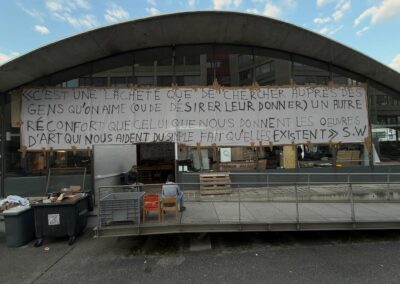 «C'EST UNE LÂCHETÉ QUE DE CHERCHER AUPRÈS DES
GENS QU'ON AIME (OU DE DÉSIRER LEUR DONNER) UN AUTRE
RÉCONFORT QUE CELUI QUE NOUS DONNENT LES ŒUVRES
D'ART QUI NOUS AIDENT DU SIMPLE FAIT QU'ELLES EXISTENT» S.W